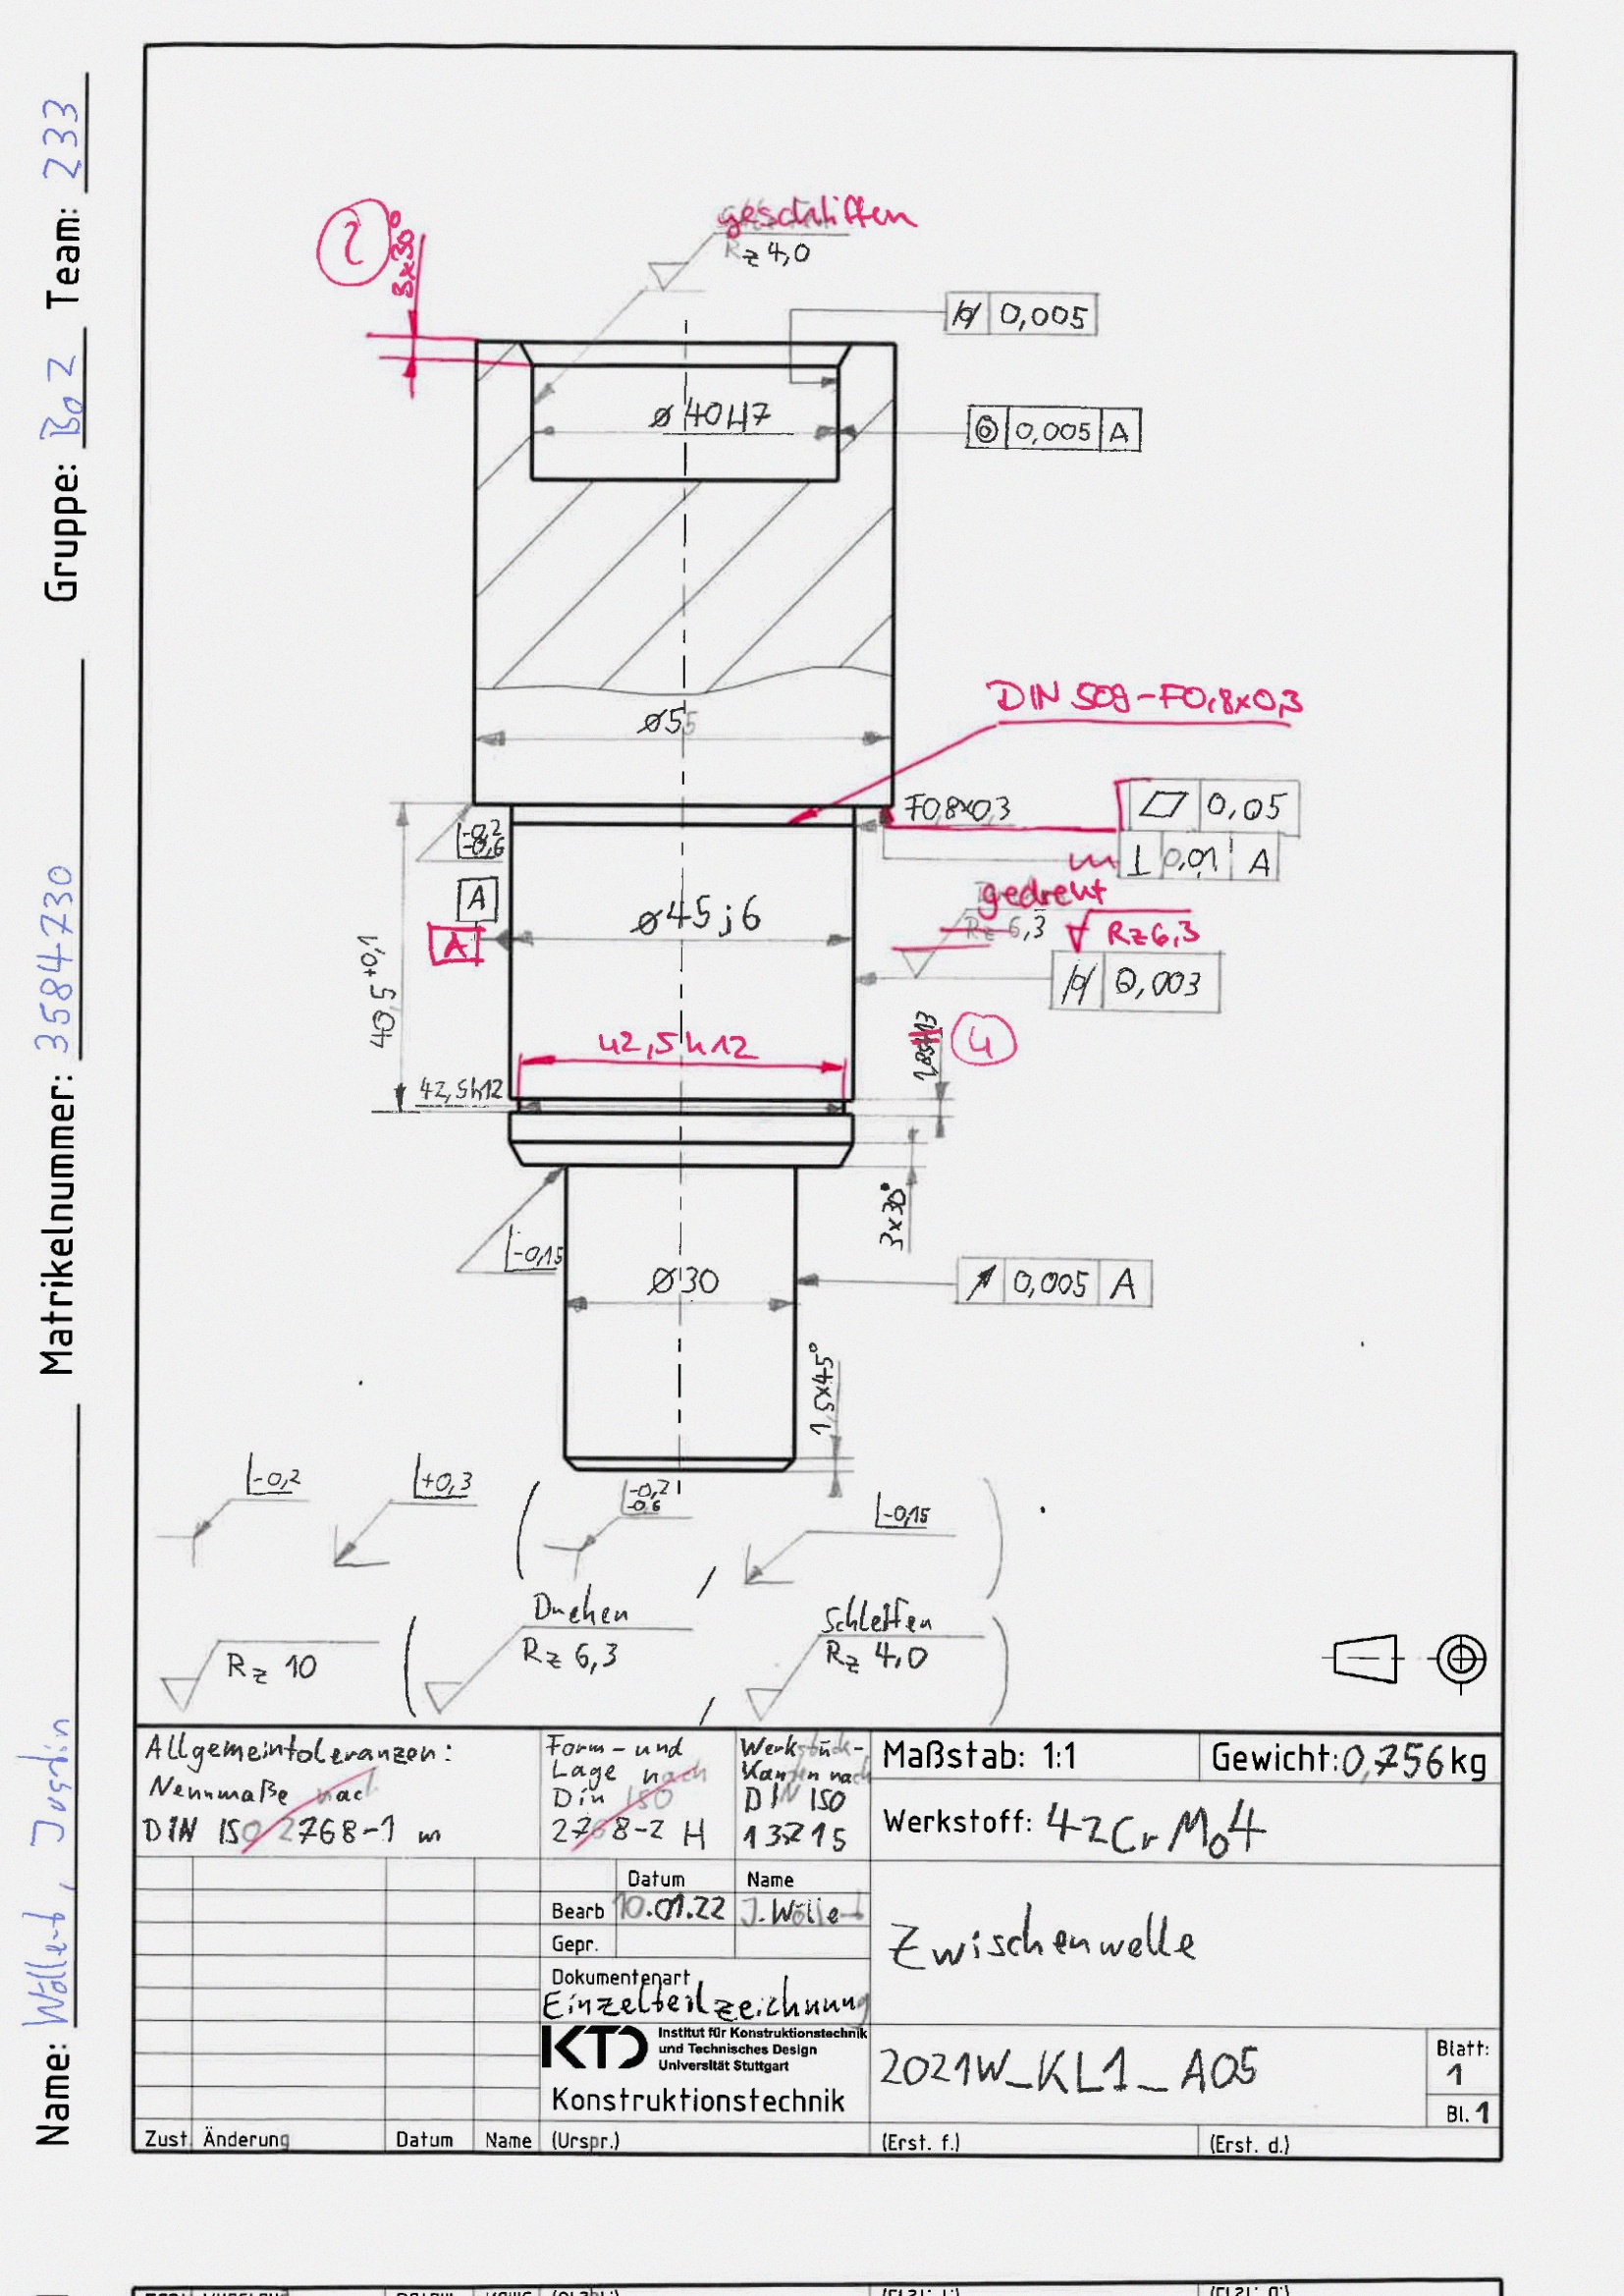 Name: Wöllert, Justin Matrikelnummer: 3584730 Gruppe: Bo2 Team: 233
2
3x30°
geschliffen
Rz 4,0
0,005
⌀40H7
◎ 0,005 A
DIN 509-F0,8x0,3
⌀55
F0,8x0,3
▱ 0,05
-0,2
-0,6
⊥ 0,01 A
A
gedreht
⌀45 j6
Rz 6,3
Rz 6,3
A
0,003
40,5 +0,1
42,5h12
4
42,5h12
3x30°
-0,15
⌀30
0,005 A
1,5x45°
-0,2
+0,3
( -0,2
-0,6
, -0,15 )
Drehen
Schleifen
Rz 10 ( Rz 6,3 , Rz 4,0 )
Allgemeintoleranzen:
Nennmaße nach
DIN ISO 2768-1 m
Form- und
Lage nach
Din ISO
2768-2 H
Werkstück-
Kanten nach
DIN ISO
13715
Maßstab: 1:1
Gewicht: 0,756kg
Werkstoff: 42CrMo4
Datum Name
Bearb 10.01.22 J. Wöllert
Gepr.
Zwischenwelle
Dokumentenart
Einzelteilzeichnung
KTD
Institut für Konstruktionstechnik
und Technisches Design
Universität Stuttgart
Konstruktionstechnik
2021W_KL1_A05
Blatt:
1
Bl. 1
Zust. Änderung Datum Name (Urspr.) (Erst. f.) (Erst. d.)